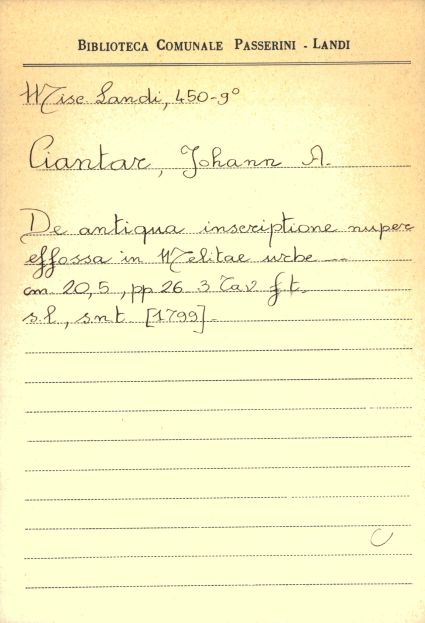 BIBLIOTECA COMUNALE PASSERINI - LANDI
Misc Landi, 450-9°
Ciantar, Johann A.
De antiqua inscriptione nuper
effossa in Melitae urbe ---
cm 20,5, pp 26. 3 Tav f.t.
s.l, s.n.t [1799].
C